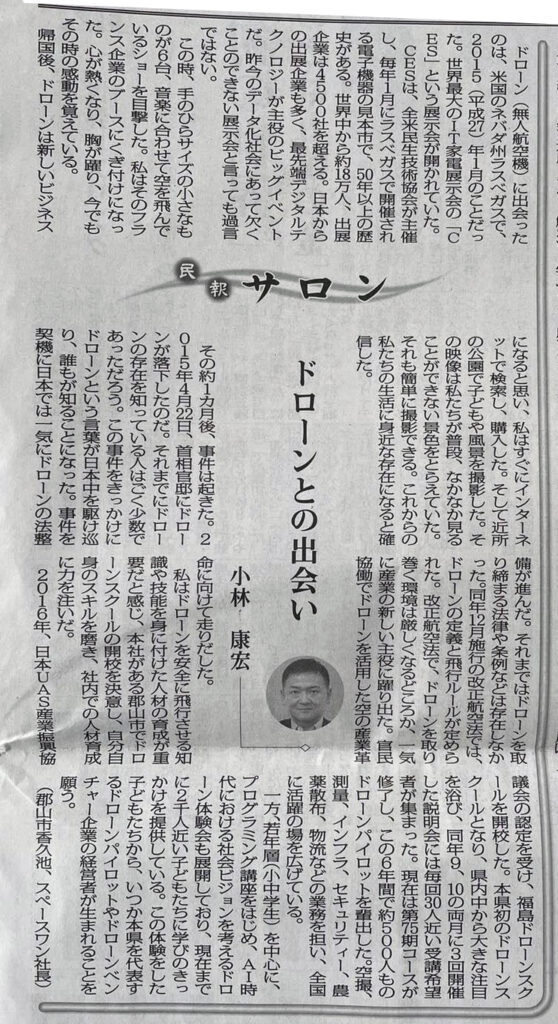 民報サロン
ドローンとの出会い
小林　康宏
　ドローン（無人航空機）に出会った
のは、米国のネバダ州ラスベガスで、
2015（平成27）年1月のことだっ
た。世界最大のIT家電展示会の「C
ES」という展示会が開かれていた。
　CESは、全米民生技術協会が主催
し、毎年1月にラスベガスで開催され
る電子機器の見本市で、50年以上の歴
史がある。世界中から約18万人、出展
企業は4500社を超える。日本から
の出展企業も多く、最先端デジタルテ
クノロジーが主役のビッグイベント
だ。昨今のデータ化社会にあって欠く
ことのできない展示会と言っても過言
ではない。
　この時、手のひらサイズの小さなも
のが6台、音楽に合わせて空を飛んで
いるショーを目撃した。私はそのフラ
ンス企業のブースにくぎ付けになっ
た。心が熱くなり、胸が躍り、今でも
その時の感動を覚えている。
　帰国後、ドローンは新しいビジネス
になると思い、私はすぐにインターネ
ットで検索し、購入した。そして近所
の公園で子どもや風景を撮影した。そ
の映像は私たちが普段、なかなか見る
ことができない景色をとらえていた。
それも簡単に撮影できる。これからの
私たちの生活に身近な存在になると確
信した。
　その約1カ月後、事件は起きた。2
015年4月22日、首相官邸にドロー
ンが落下したのだ。それまでにドロー
ンの存在を知っている人はごく少数で
あっただろう。この事件をきっかけに
ドローンという言葉が日本中を駆け巡
り、誰もが知ることになった。事件を
契機に日本では一気にドローンの法整
備が進んだ。それまではドローンを取
り締まる法律や条例などは存在しなか
った。同年12月施行の改正航空法では、
ドローンの定義と飛行ルールが定めら
れた。改正航空法で、ドローンを取り
巻く環境は厳しくなるどころか、一気
に産業の新しい主役に躍り出た。官民
協働でドローンを活用した空の産業革
命に向けて走りだした。
　私はドローンを安全に飛行させる知
識や技能を身に付けた人材の育成が重
要だと感じ、本社がある郡山市でドロ
ーンスクールの開校を決意し、自分自
身のスキルを磨き、社内での人材育成
に力を注いだ。
　2016年、日本UAS産業振興協
議会の認定を受け、福島ドローンスク
ールを開校した。本県初のドローンス
クールとなり、県内中から大きな注目
を浴び、同年9、10の両月に3回開催
した説明会には毎回30人近い受講希望
者が集まった。現在は第75期コースが
修了し、この6年間で約500人もの
ドローンパイロットを輩出した。空撮、
測量、インフラ、セキュリティー、農
薬散布、物流などの業務を担い、全国
に活躍の場を広げている。
　一方、若年層（小中学生）を中心に、
プログラミング講座をはじめ、AI時
代における社会ビジョンを考えるドロ
ーン体験会も展開しており、現在まで
に2千人近い子どもたちに学びのきっ
かけを提供している。この体験をした
子どもたちから、いつか本県を代表す
るドローンパイロットやドローンベン
チャー企業の経営者が生まれることを
願う。
（郡山市香久池、スペースワン社長）